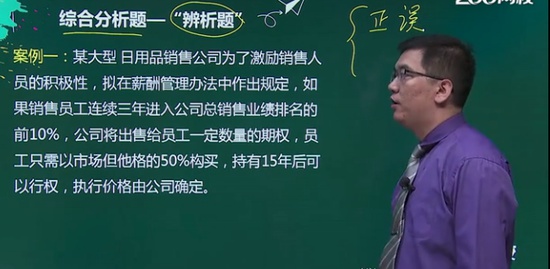 综合分析题—“辨析题”
正误
案例一：某大型 日用品销售公司为了激励销售人
员的积极性，拟在薪酬管理办法中作出规定，如
果销售员工连续三年进入公司总销售业绩排名的
前10%，公司将出售给员工一定数量的期权，员
工只需以市场但他格的50%构买，持有15年后可
以行权，执行价格由公司确定。